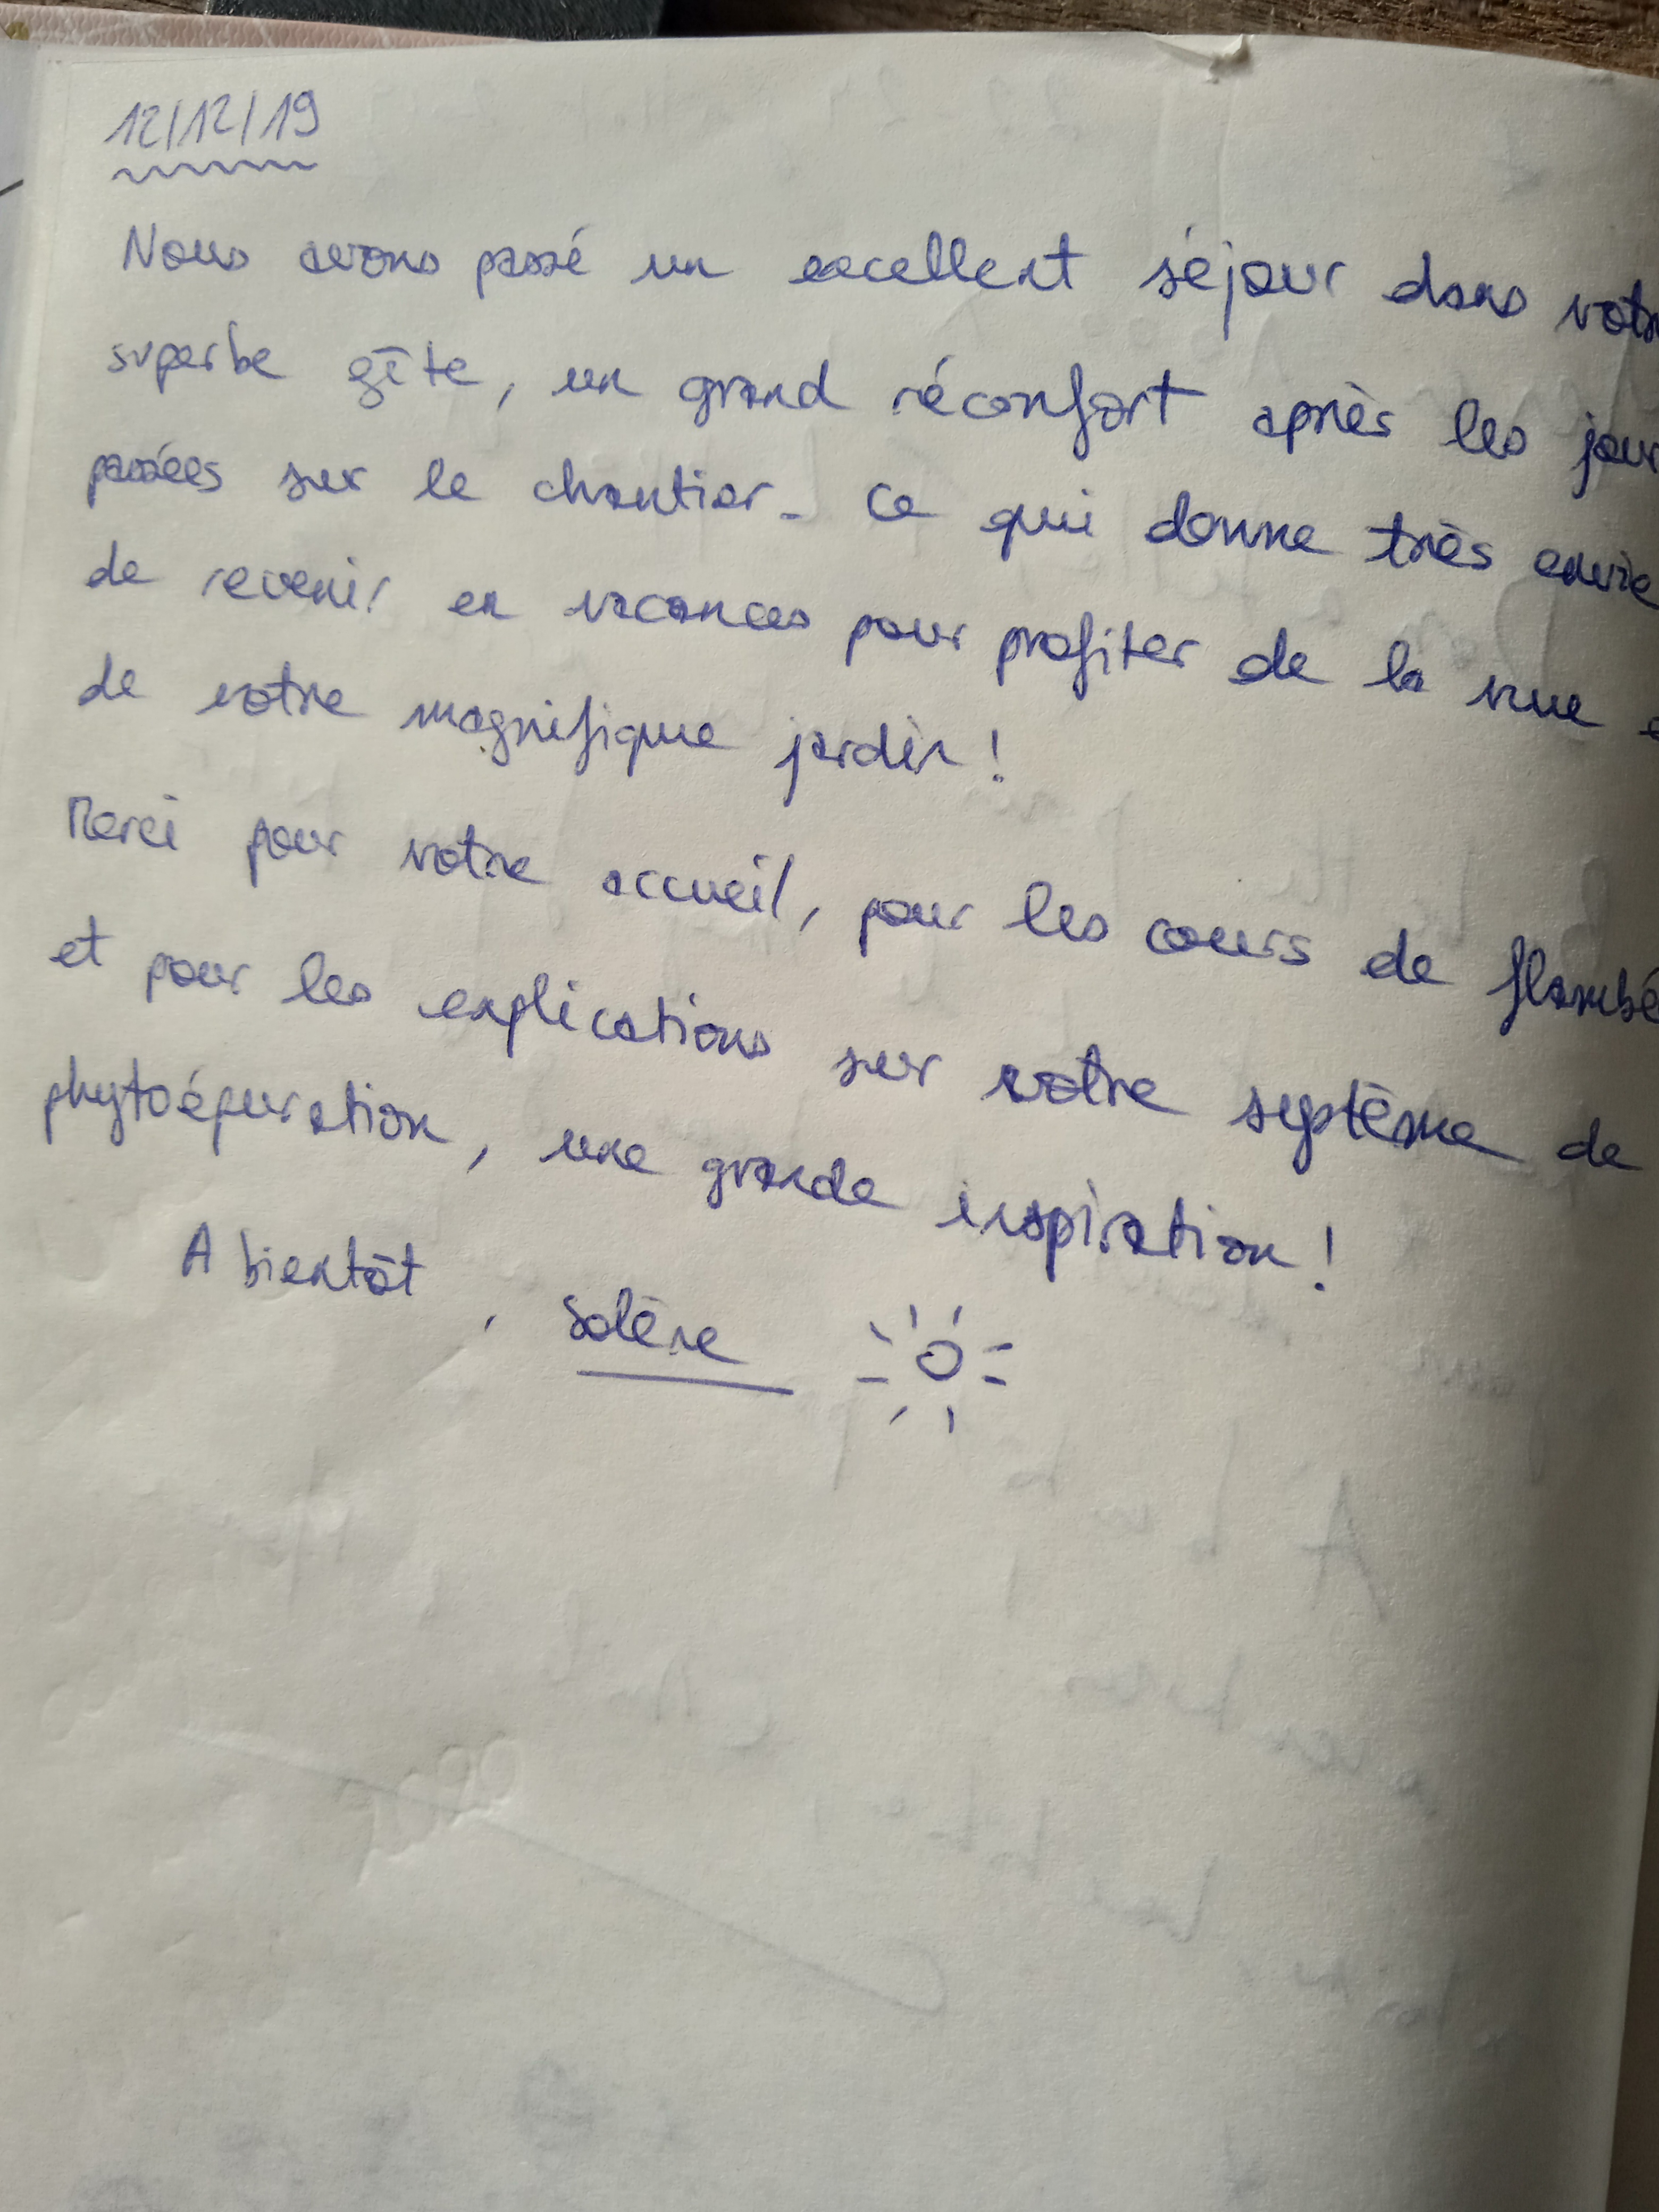 12/12/19
Nous avons passé un excellent séjour dans votr
superbe gîte, un grand réconfort après les jour
passées sur le chantier. Ce qui donne très envie
de revenir en vacances pour profiter de la vue e
de votre magnifique jardin !
Merci pour votre accueil, pour les cours de flambé
et pour les explications sur votre système de
phytoépuration, une grande inspiration !
A bientôt, Solène